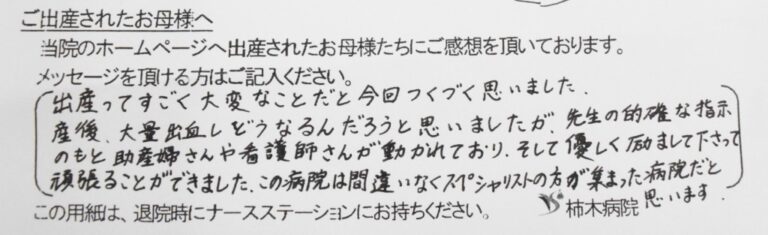 ご出産されたお母様へ
当院のホームページへ出産されたお母様たちにご感想を頂いております。
メッセージを頂ける方はご記入ください。
出産ってすごく大変なことだと今回つくづく思いました.
産後、大量出血しどうなるんだろうと思いましたが、先生の的確な指示
のもと助産婦さんや看護師さんが動かれており、そして優しく励まして下さって
頑張ることができました、この病院は間違いなくスペシャリストの方が集まった病院だと
思います.
この用紙は、退院時にナースステーションにお持ちください。 柿木病院